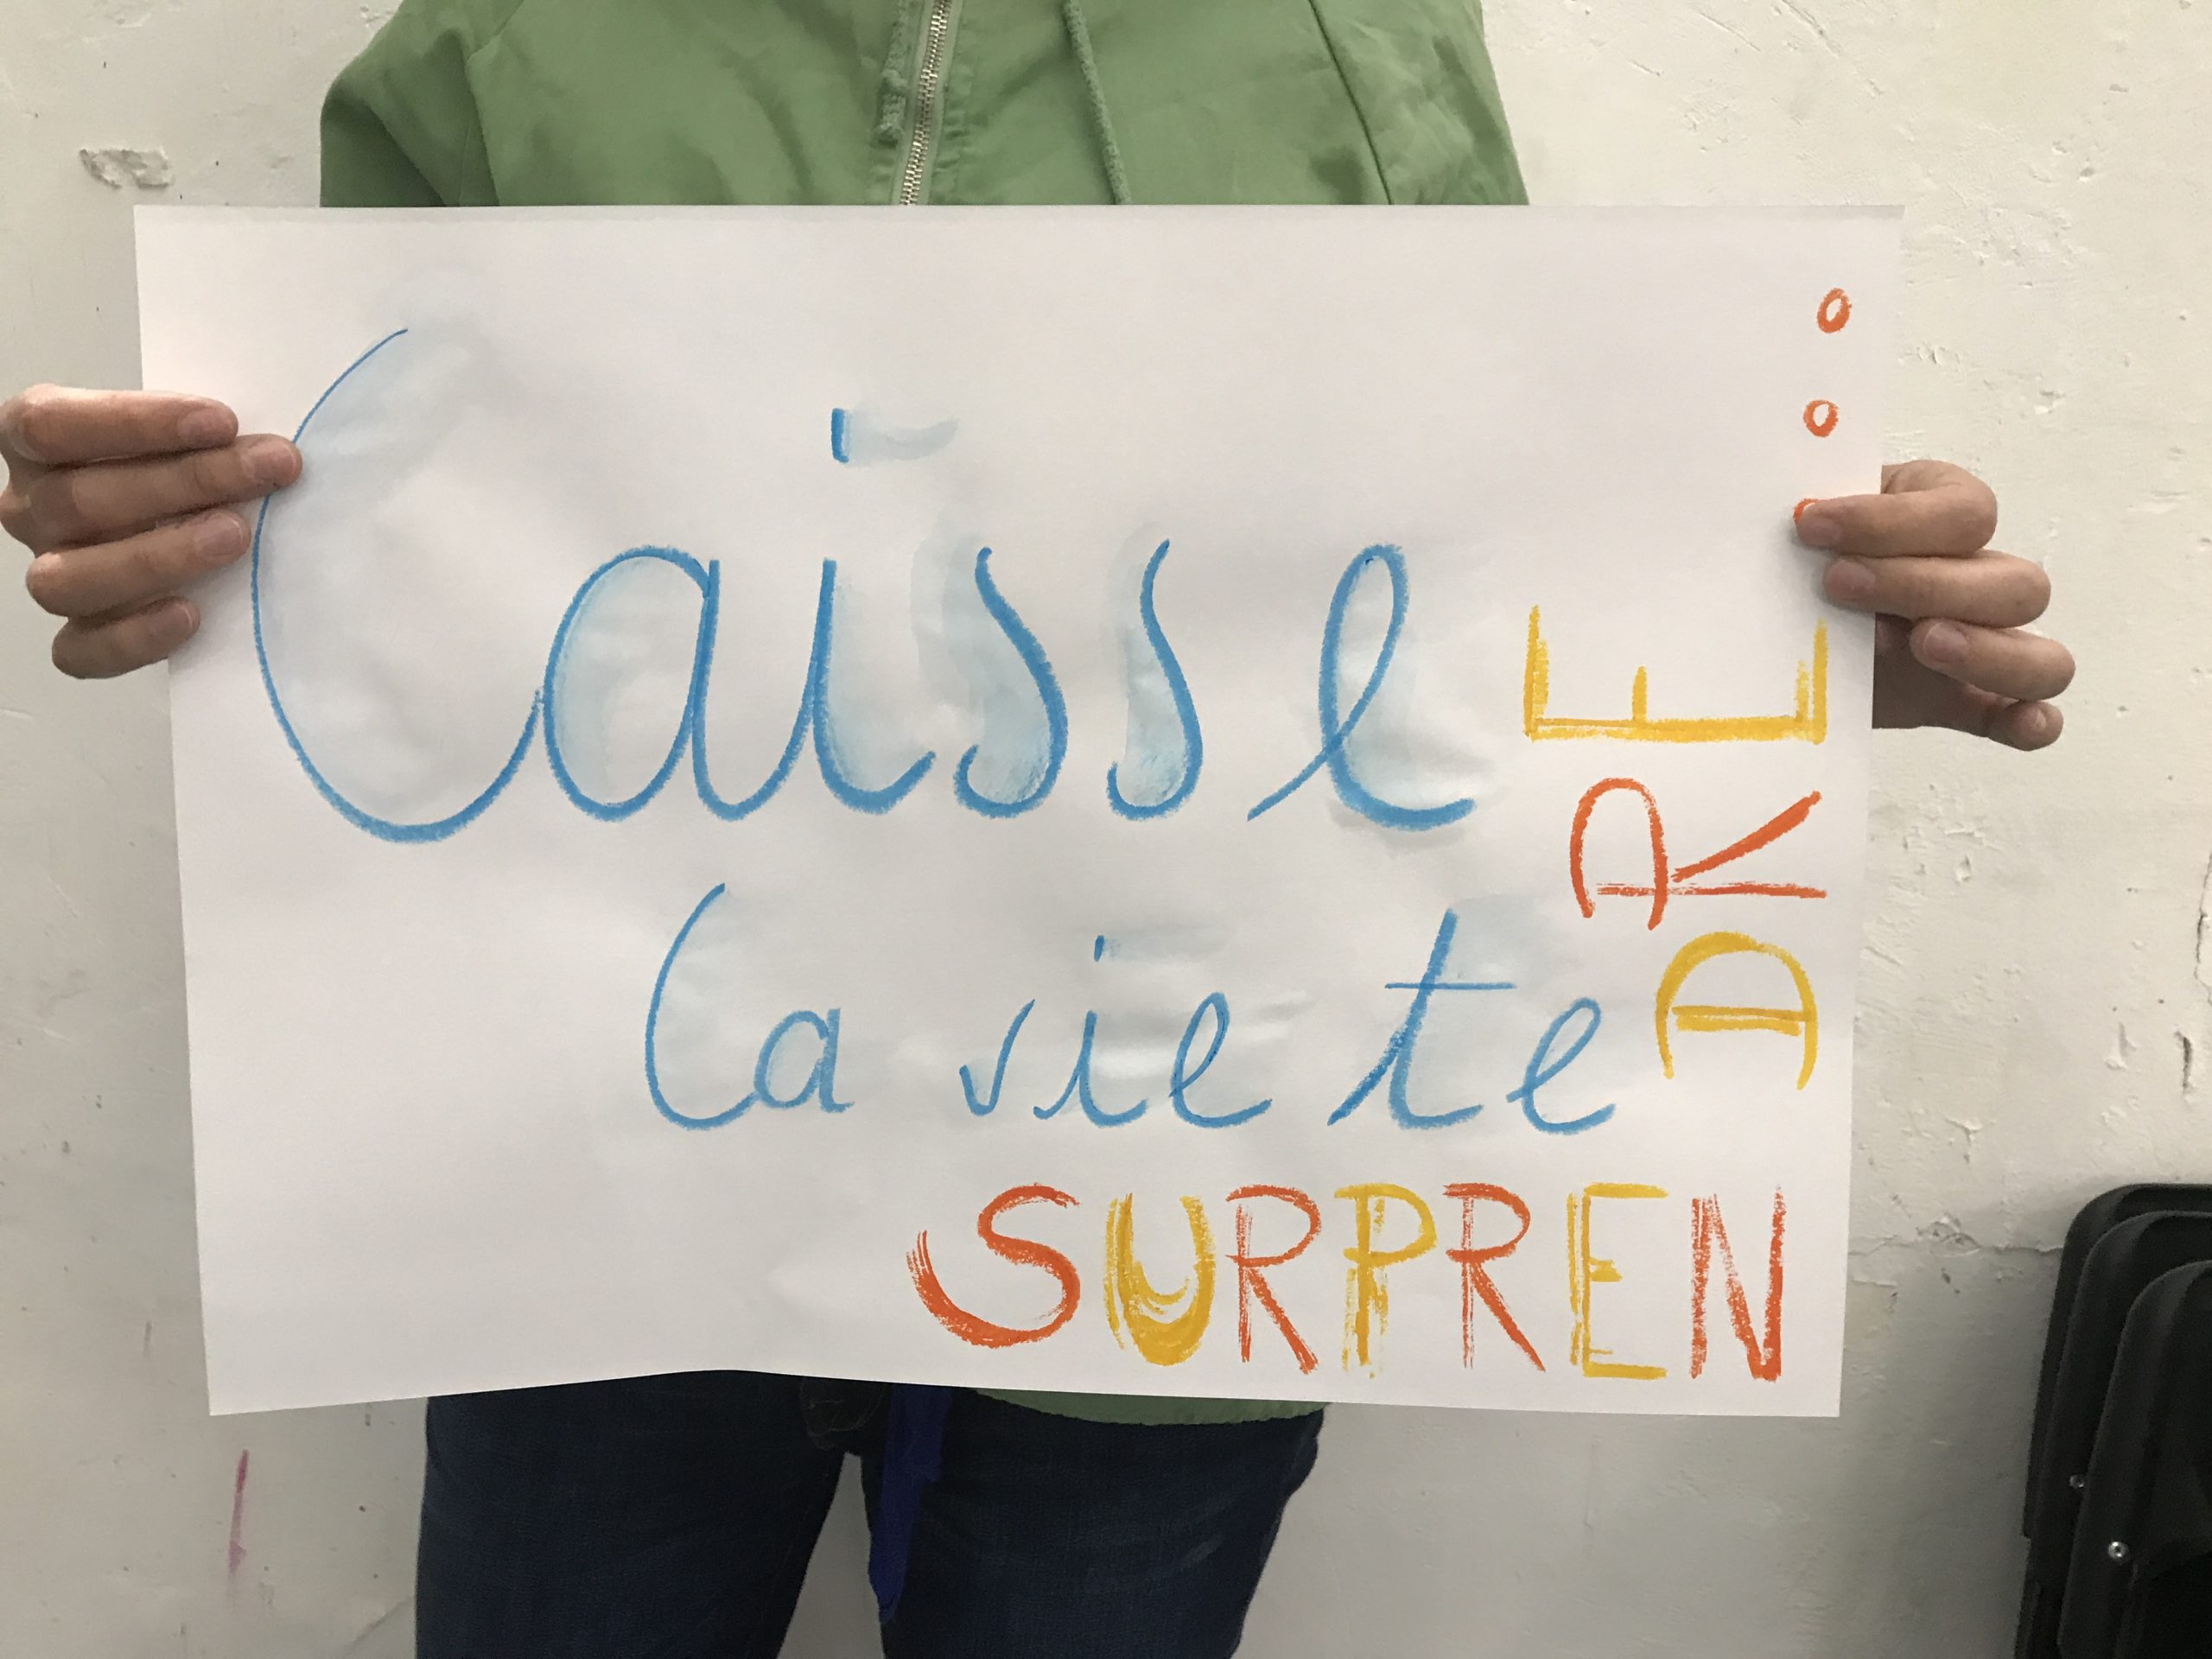 Laisse
la vie te
SURPRENDRE...